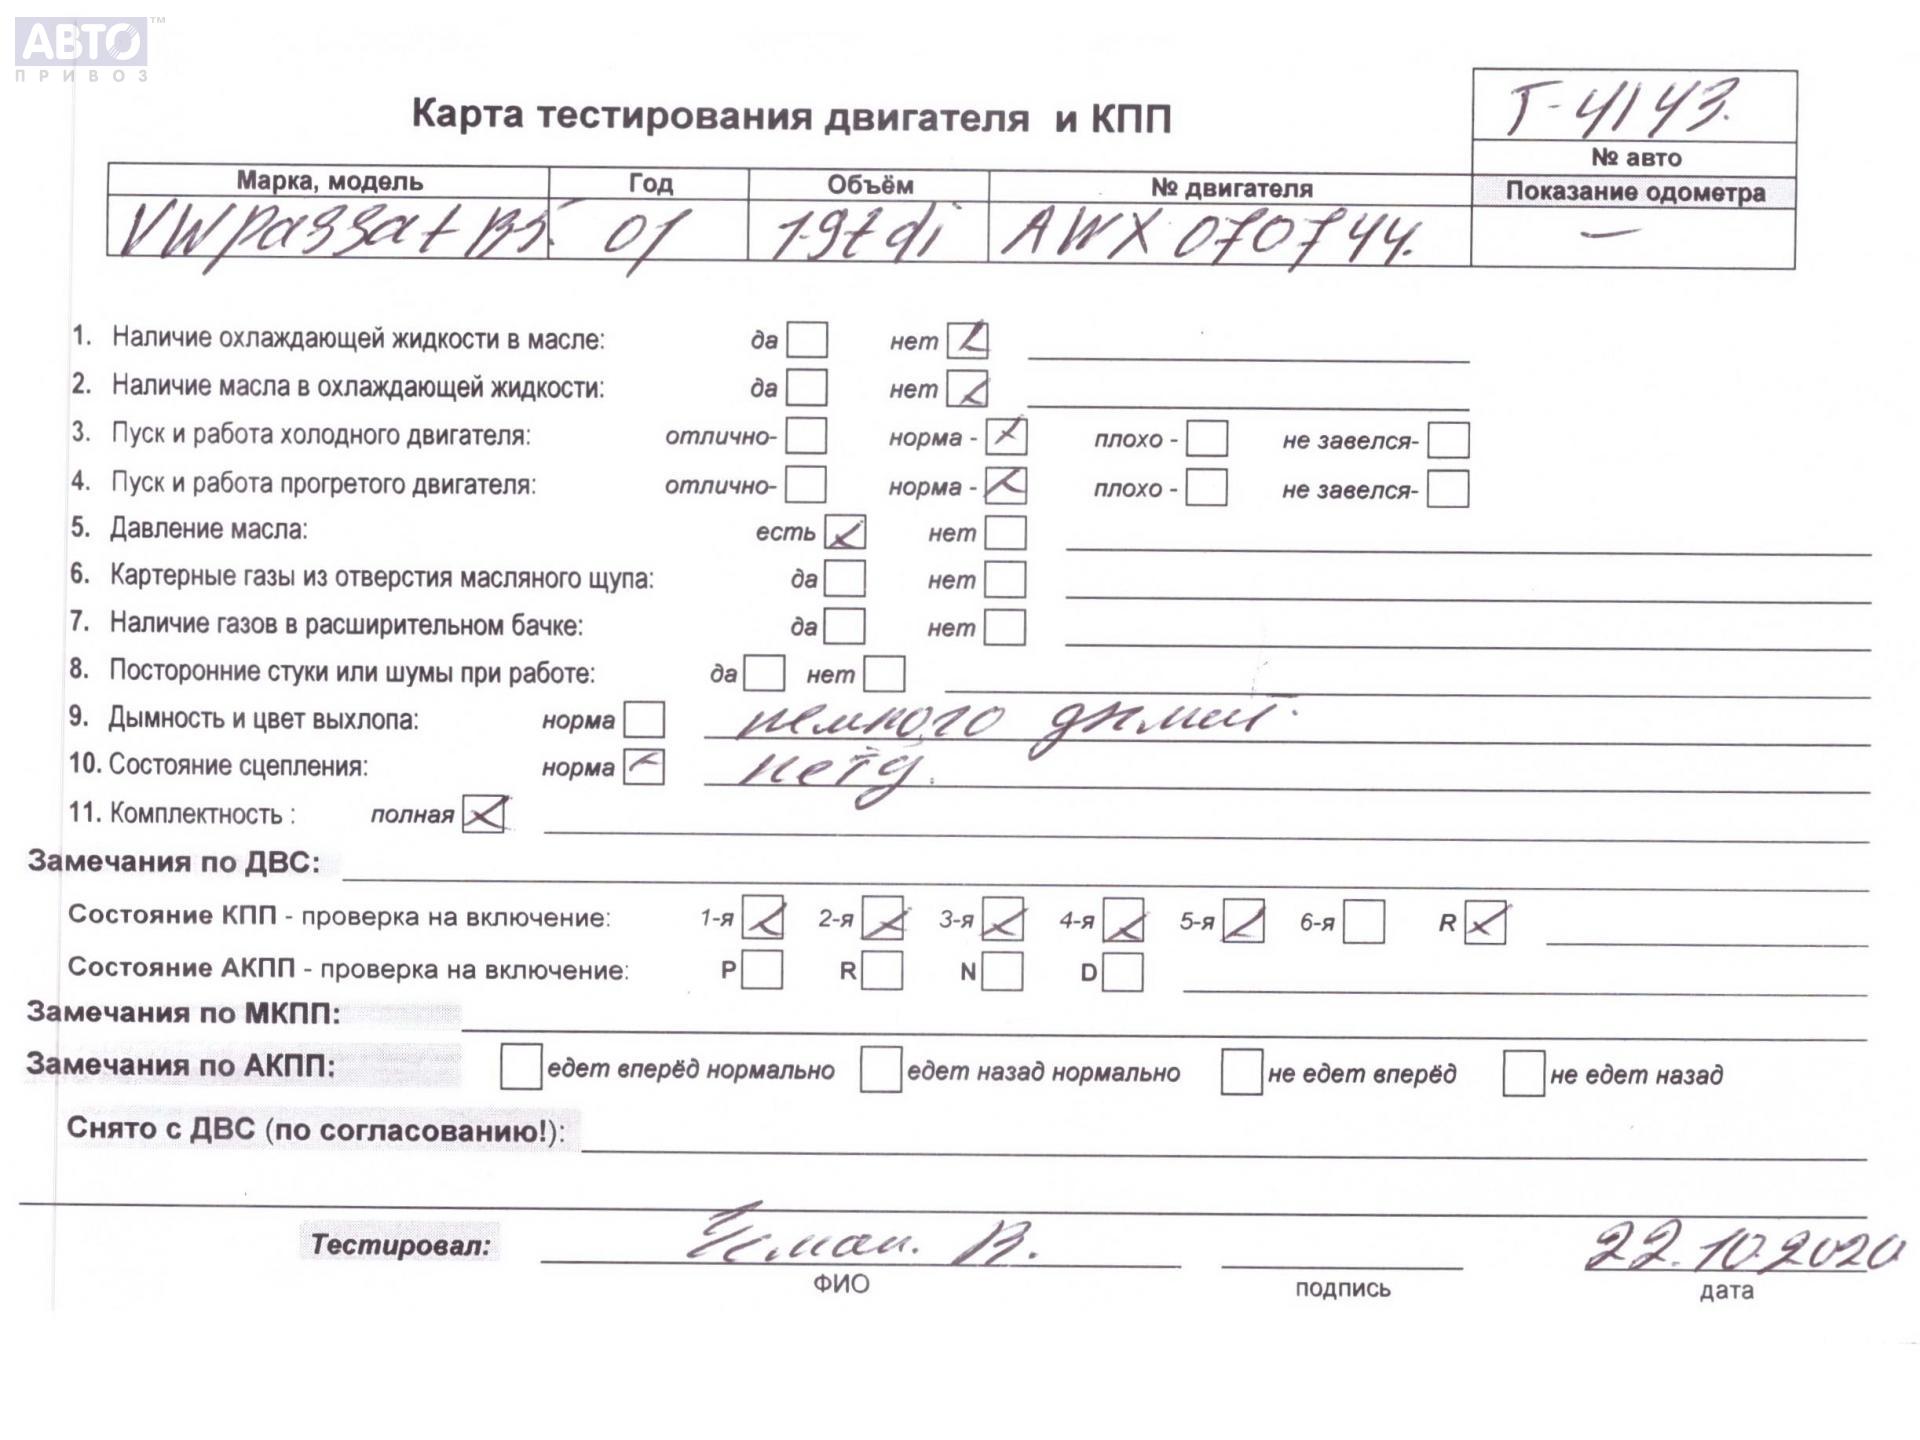 АВТО™
ПРИВОЗ
Карта тестирования двигателя и КПП
Т-4143.
№ авто
Марка, модель Год Объём № двигателя Показание одометра
VW passat B5. 01 1.9tdi AWX 070744. –
1. Наличие охлаждающей жидкости в масле: да нет
2. Наличие масла в охлаждающей жидкости: да нет
3. Пуск и работа холодного двигателя: отлично- норма - плохо - не завелся-
4. Пуск и работа прогретого двигателя: отлично- норма - плохо - не завелся-
5. Давление масла: есть нет
6. Картерные газы из отверстия масляного щупа: да нет
7. Наличие газов в расширительном бачке: да нет
8. Посторонние стуки или шумы при работе: да нет
9. Дымность и цвет выхлопа: норма немного дымит.
10. Состояние сцепления: норма нету.
11. Комплектность : полная
Замечания по ДВС:
Состояние КПП - проверка на включение: 1-я 2-я 3-я 4-я 5-я 6-я R
Состояние АКПП - проверка на включение: P R N D
Замечания по МКПП:
Замечания по АКПП: едет вперёд нормально едет назад нормально не едет вперёд не едет назад
Снято с ДВС (по согласованию!):
Тестировал: В. 22.10.2020
ФИО подпись дата